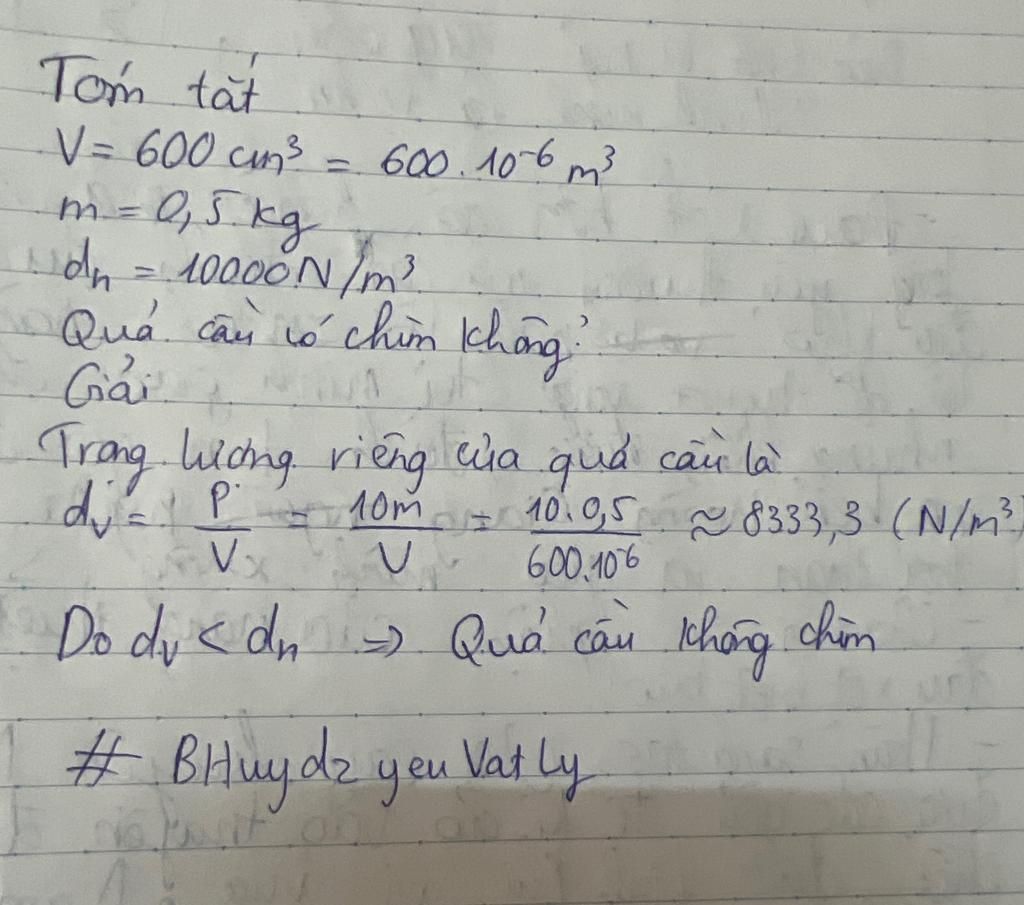 Tóm tắt
V = 600 cm³ = 600.10⁻⁶ m³
m = 0,5 kg
dn = 10000N/m³
Quả cầu có chìm không?
Giải
Trọng lượng riêng của quả cầu là
dv = P/V = 10m/V = 10.0,5/600.10⁻⁶ ≈ 8333,3 (N/m³)
Do dv < dn => Quả cầu không chìm
# BHuydz yeu Vat Ly